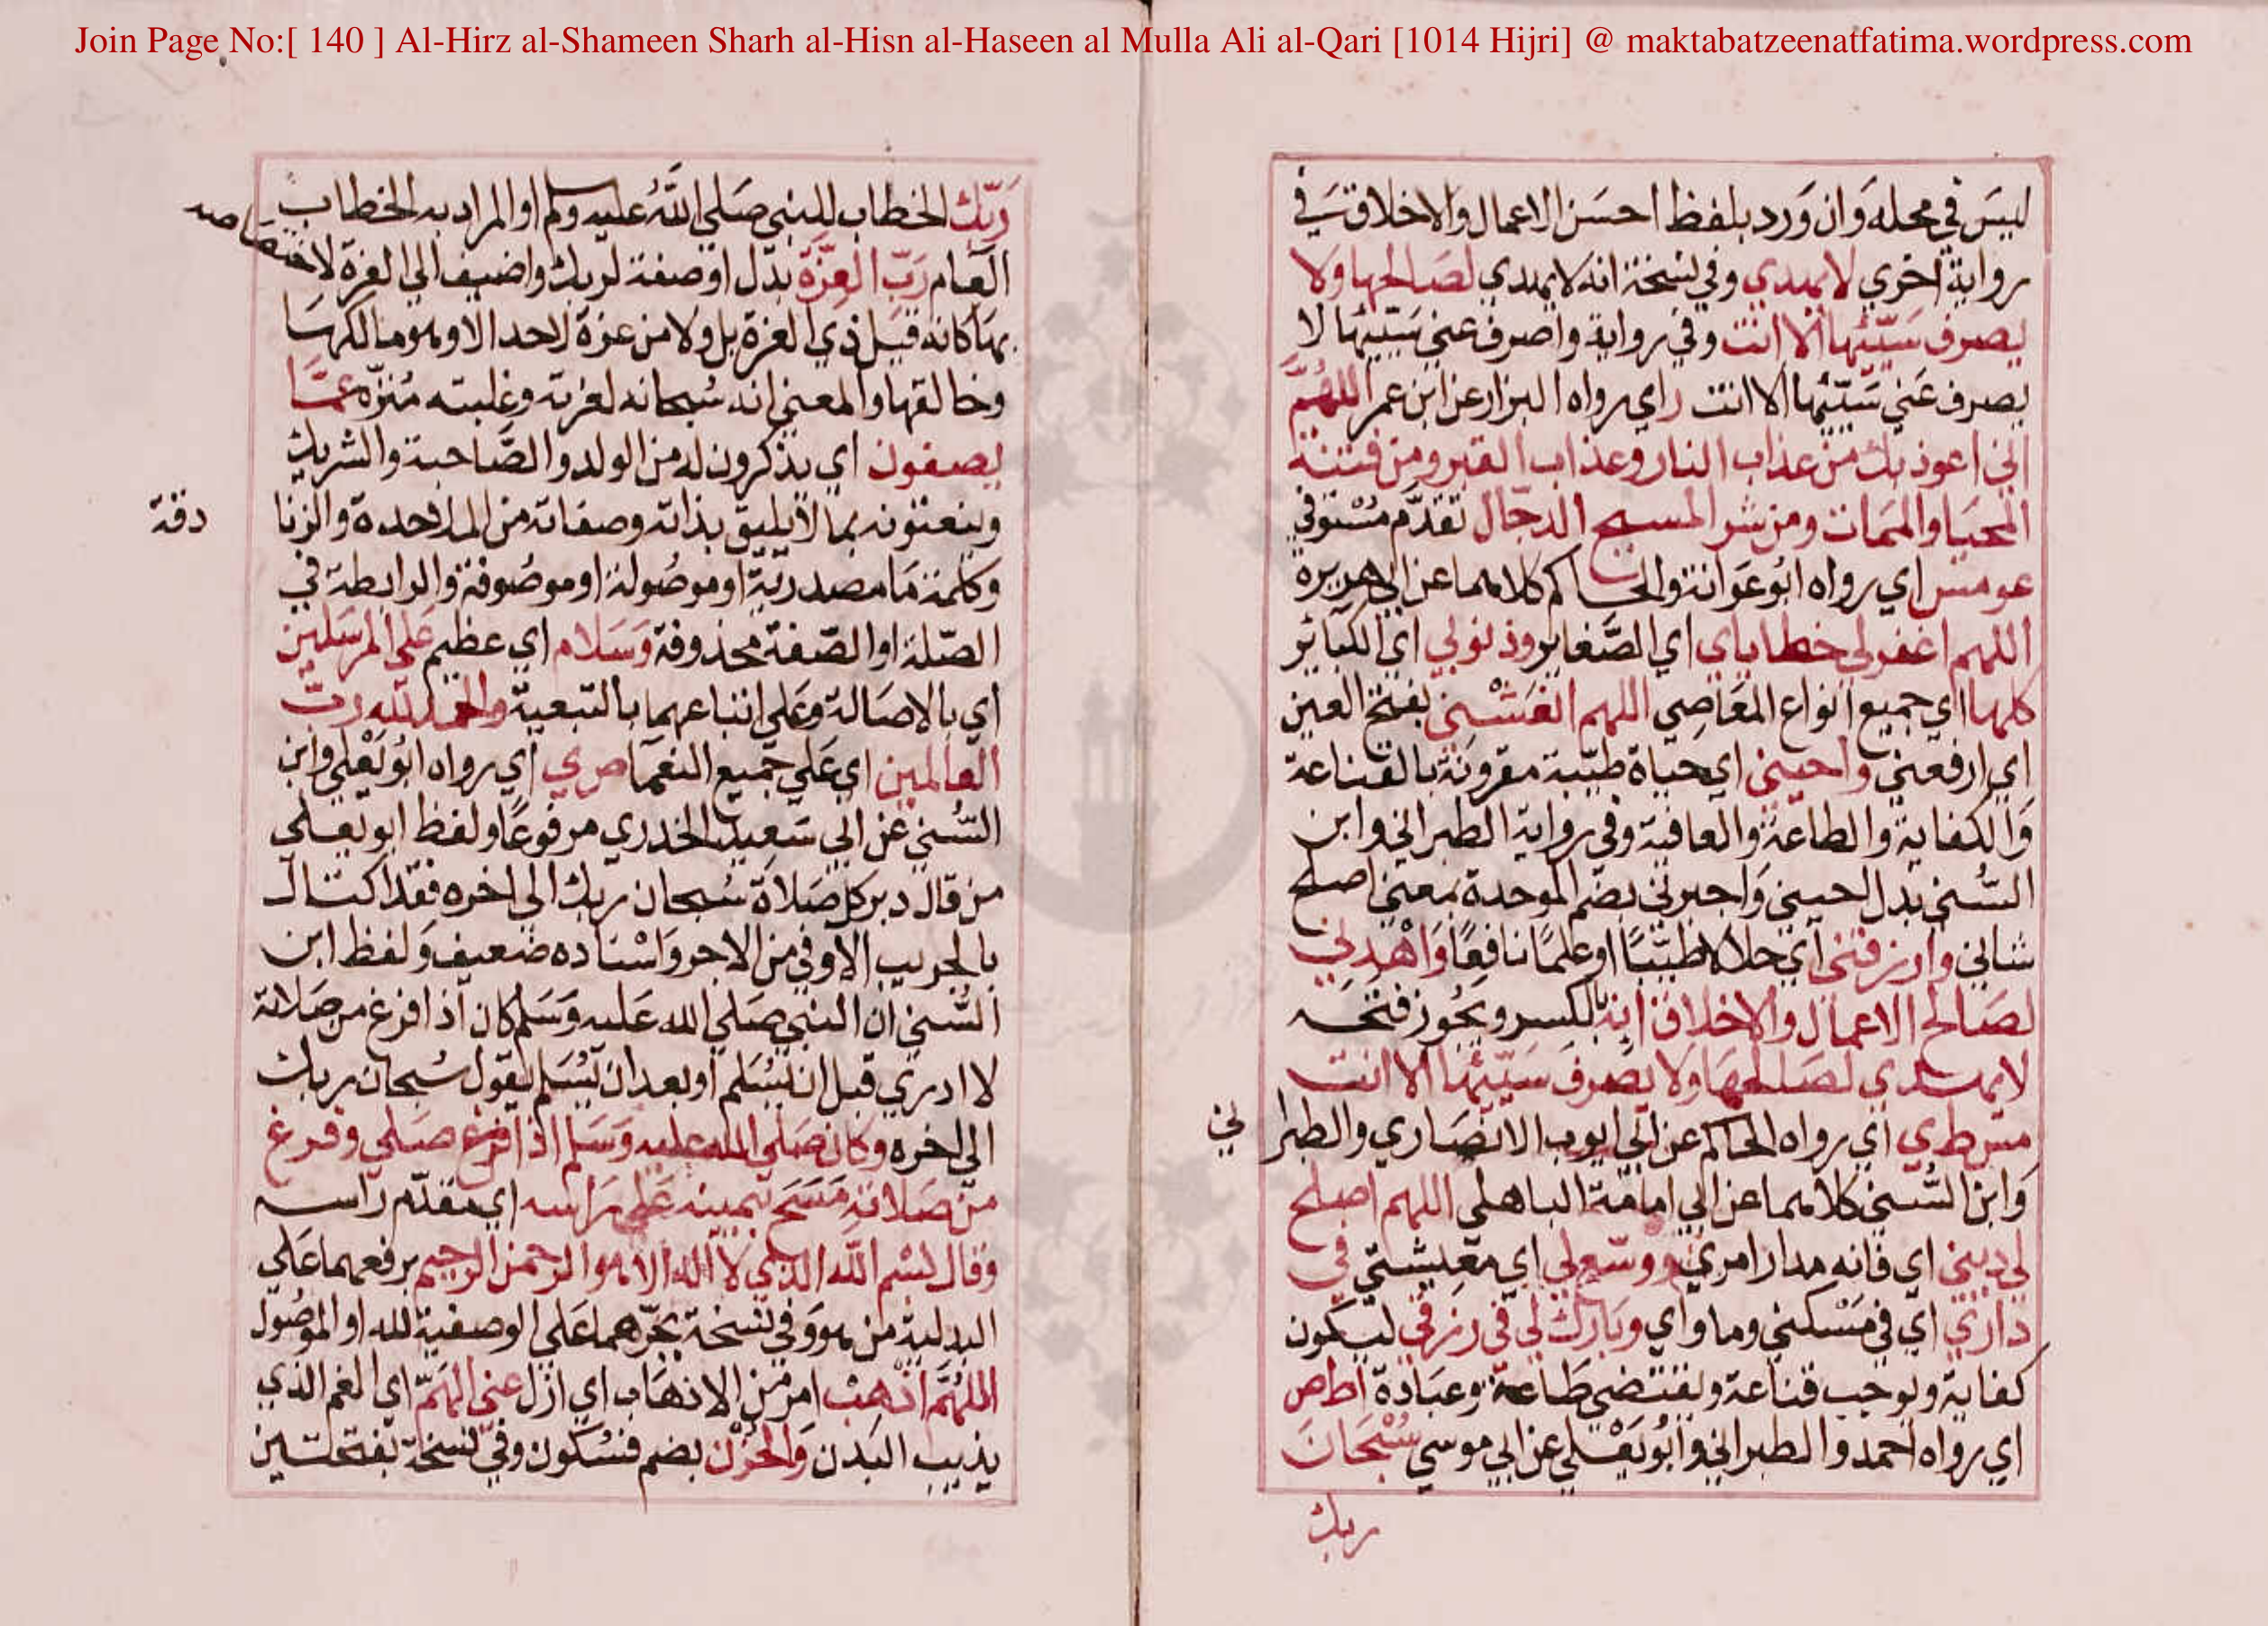 Join Page No:[ 140 ] Al-Hirz al-Shameen Sharh al-Hisn al-Haseen al Mulla Ali al-Qari [1014 Hijri] @ maktabatzeenatfatima.wordpress.com
ليسَ في محله وَان وَرد بلفظ احسَن الاعمال والاخلاق سَـ في
رواية اخري لا يهدي وفي نسخة انه لا يهدي لصَالحها ولا
يصرف سَيّئها الا انت وفي رواية واصرف عني سَيّئها لا
يصرف عَني سَيّئها الا انت ر اي رواه البزار عن ابن عمر اللهُمَّ
اني اعوذ بك من عذاب النار وعذاب القبر ومن فتنة
المحيَا والمَمات ومن شر المسيح الدجّال تقدّم مُسْتوفي
عو مس اي رواه ابُو عَوانة والحاكم كلاهما عن ابي هريرة
اللهم اغفر لي خطاياي اي الصَّغاير وذنوبي اي الكبَائر
كلها اي جميع انواع المعَاصِي اللهم انعَشْني بفتح العين
اي ارفعني واحيني اي حياة طيّبة مقرونة بالقناعة
وَالكفاية والطاعة والعافية وفي رواية الطبراني وابن
السُّني بدل احييني وَاجبرني بضم الموحدة بمعني اصلح
شاني وارزقني اي حلالا طيّبًا او علمًا نافعًا وَاهْدِني
لصَالح الاعمال والاخلاق انه بالكسر ويجُوز فتحه
لا يهدي لصَالحهَا وَلا يصرفَ سَيّئها الا انت
مس ط ي اي رواه الحاكم عن ابي ايوب الانصَاري والطبرا
ني
وَابن السُّني كلاهما عن ابي امامة الباهلي اللهم اصلح
لي ديني اي فانه مدار امري ووسّع لي اي معيشتي في
داري اي في مَسْكني وماواي وبَارك لي في رزقي ليكون
كفاية ويوجب قناعة ويقتضي طَاعة وعبَادة ا ط ص
اي رواه احمد والطبراني وابُو يَعْلي عن ابي موسي سُبْحَانَ
ربك
رَبّكَ الخطاب للنبي صَلي اللهُ عليه وسلم او المراد به الخطاب
العام رَبّ العِزَّة بدَل او صفة لربك واضيف الي العزة لاختصَاصه
بهَا كانه قيل ذي العزة بل ولا من عزة لاحد الا وهو مالكهَا
وخالقها والمعني انه سُبحانه لعزته وغلبته مُنزّه عمَّا
يصفون اي يذكرون له من الولد والصَّاحبة والشريك
وينعتونه بما لا يليق بذاته وصفاته من الملاحدة والزنا
دقة
وكلمة مَا مصدرية او موصُولة او موصُوفة والرابطة في
الصّلة او الصّفة محذوفة وَسَلام اي عظيم عَلي المرسَلين
اي بالاصَالة وعَلي اتباعهما بالتبعية والحمد لله ربّ
العالمين اي عَلي جَميع النعمَا ص ي اي رواه ابُو يَعْلي وابن
السُّني عن ابي سَعيد الخدري مرفوعًا ولفظ ابو يعلي
من قال دبر كل صَلاة سُبحان ربك الي اخره فقد اكتال
بالجريب الاوفي من الاجر وَاسْناده ضعيف وَلفظ ابن
السُّني ان النبي صَلي الله عَليه وَسَلم كان اذا فرغ من صَلاته
لا ادري قبل ان يُسَلم او بعد ان يُسَلم يقول سُبحان ربك
الي اخره وكان صَلي الله عليه وَسَلم اذا صَلي وفرغ
من صَلاته مَسَحَ بيمينه عَلي رَاسه اي مقدّم راسه
وقال بسْم الله الذي لا اله الا هو الرحمن الرحيم برفعهما عَلي
البدلية من هو وَفي نسخة بجرّهما عَلي الوصفية لله او الموصُول
اللهُمَّ اذْهِبْ امر من الاذهَاب اي ازل عني الهَمّ اي الغم الذي
يذيب البَدن وَالحُزْن بضم فسُكون وفي نسخة بفتحتين